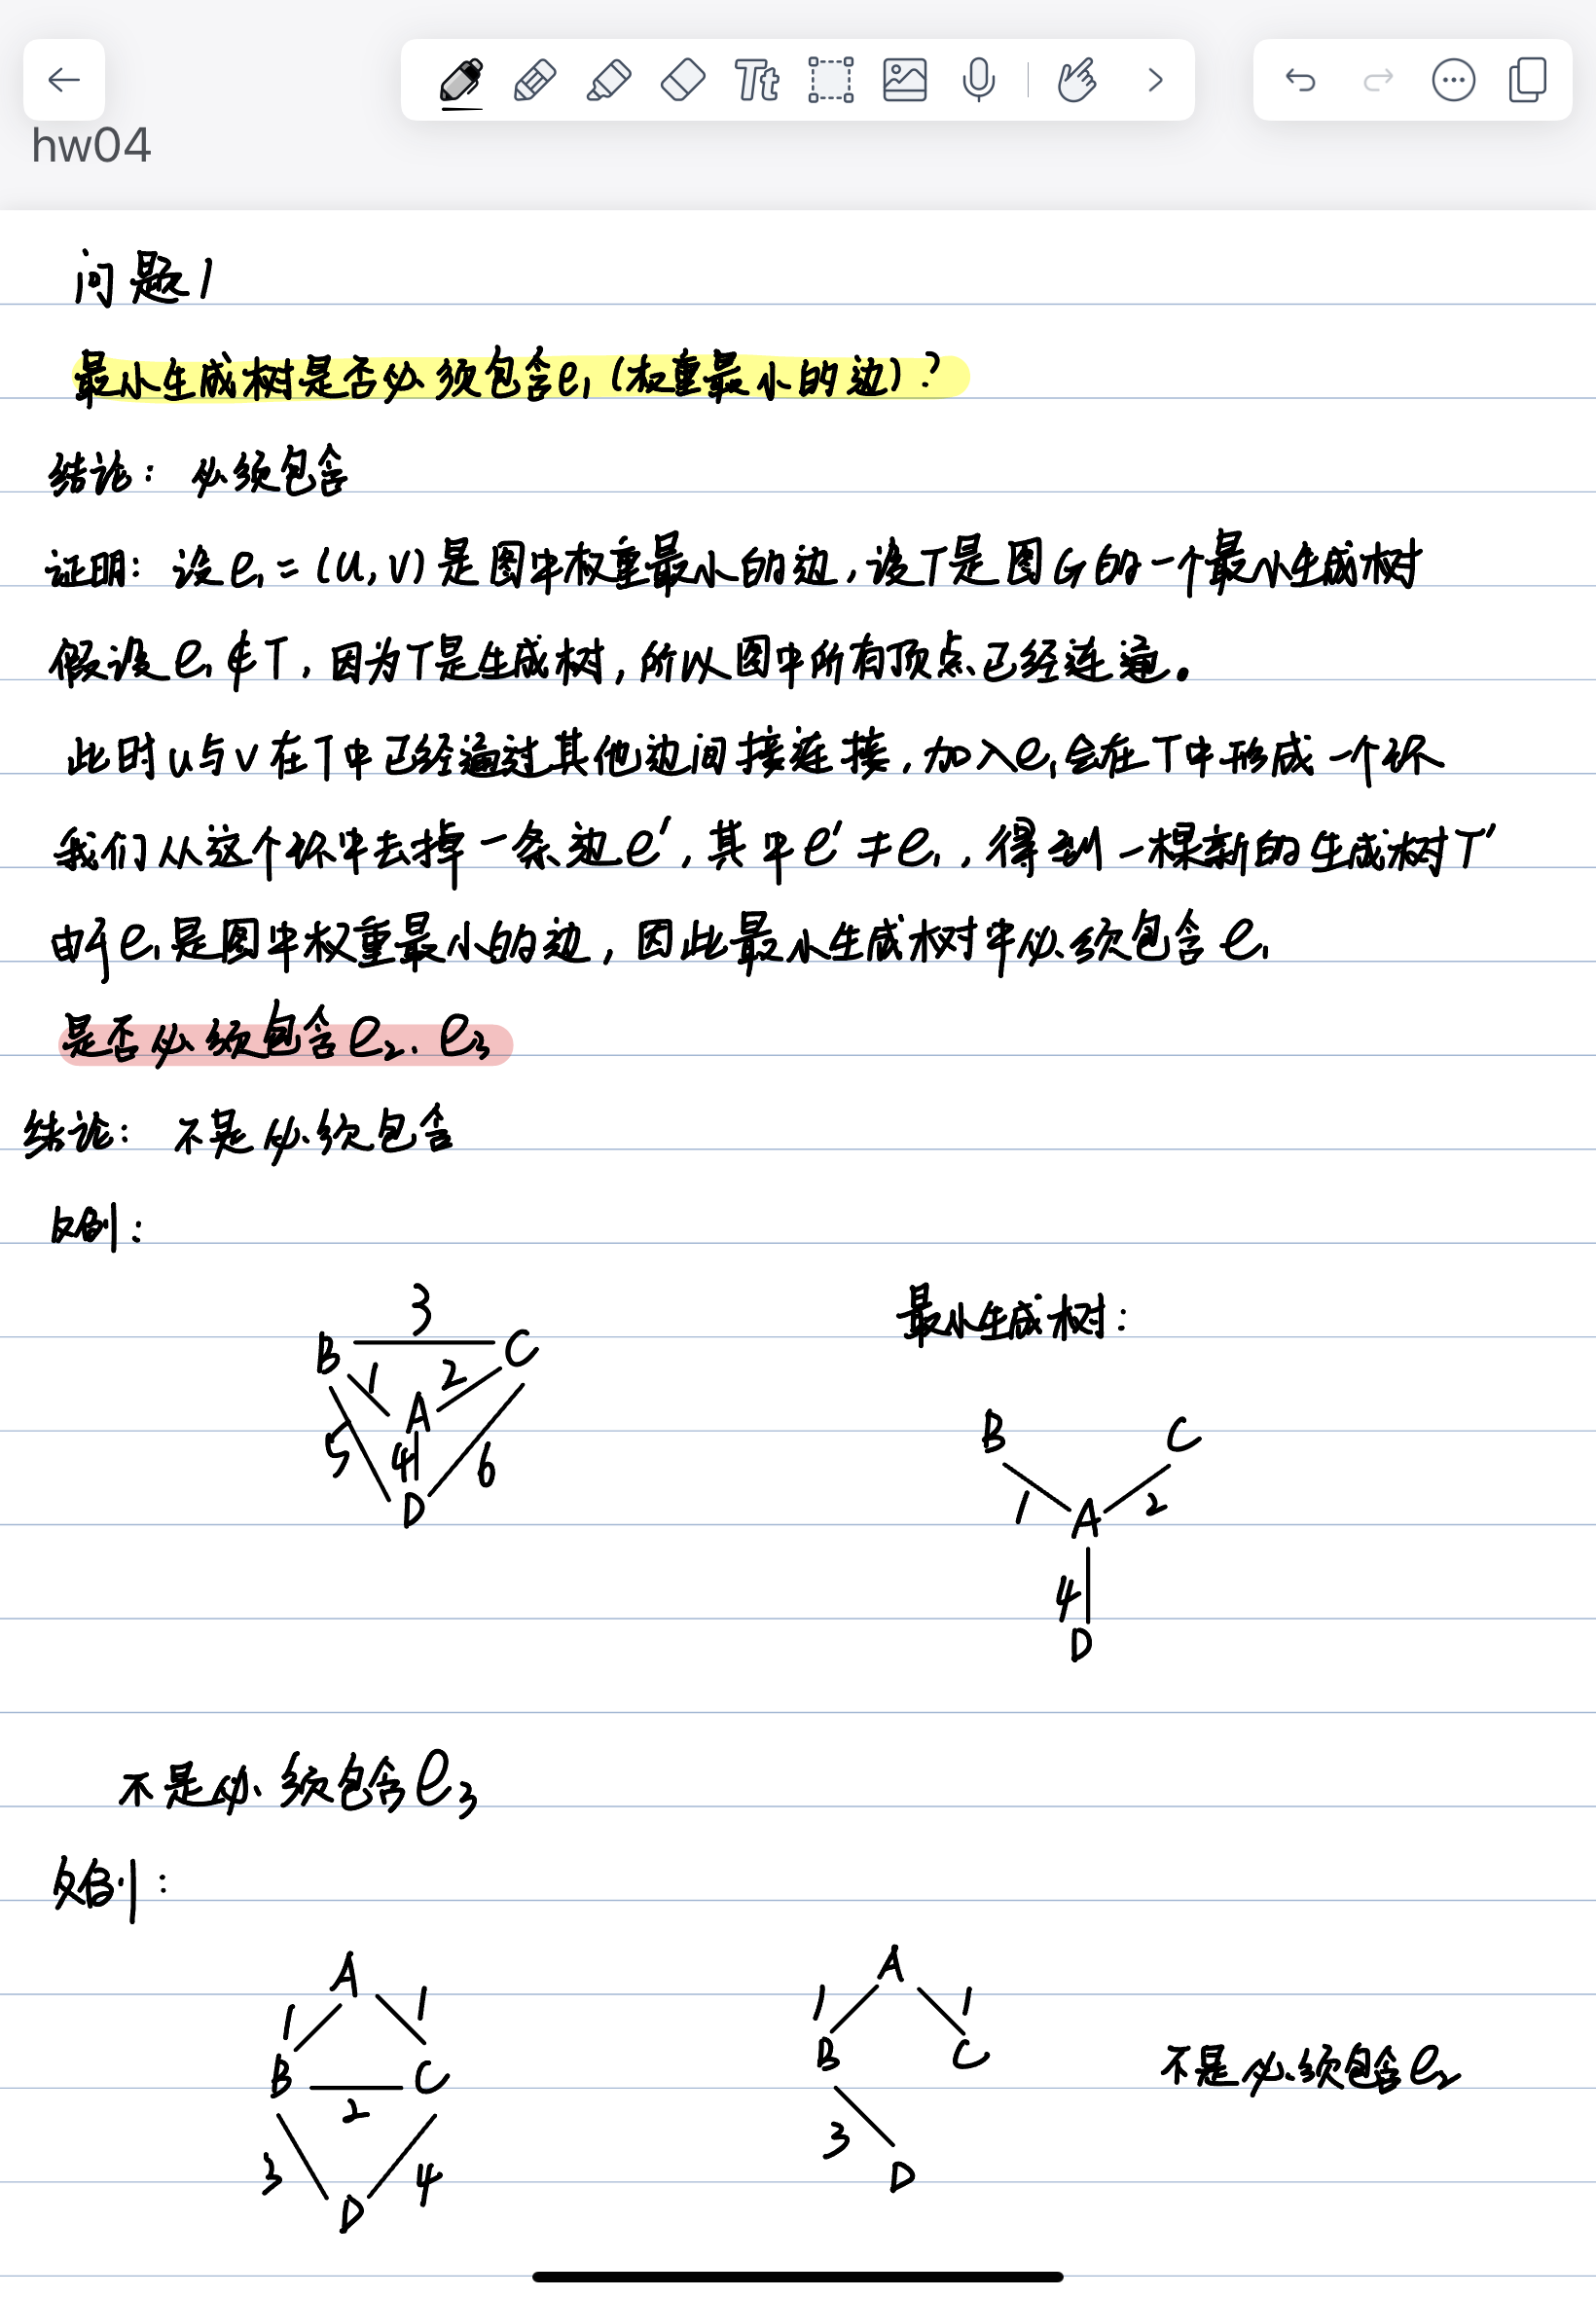 Tt
hw04
问题1
最小生成树是否必须包含e₁(权重最小的边)?
结论: 必须包含
证明: 设e₁=(u,v)是图中权重最小的边,设T是图G的一个最小生成树
假设e₁∉T,因为T是生成树,所以图中所有顶点已经连通。
此时u与v在T中已经通过其他边间接连接,加入e₁会在T中形成一个环
我们从这个环中去掉一条边e′,其中e′≠e₁,得到一棵新的生成树T′
由于e₁是图中权重最小的边,因此最小生成树中必须包含e₁
是否必须包含e₂、e₃
结论: 不是必须包含
反例:
3
最小生成树:
B C
1 2
A
5 4 6
D
B C
1 2
A
4
D
不是必须包含e₃
反例:
A
1 1
B C
2
3 4
D
A
1 1
B C
3
D
不是必须包含e₂